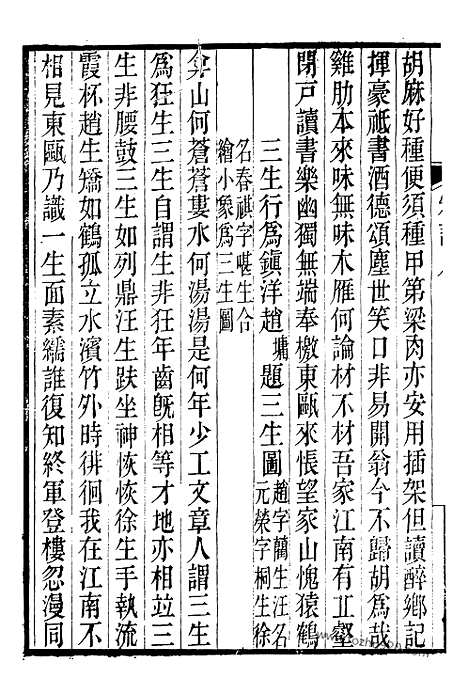 胡麻好種便須種甲第梁肉亦安用插架但讀醉鄉記
揮豪祗書酒德頌塵世笑口非易開翁今不歸胡爲哉
雞肋本來味無味木雁何論材不材吾家江南有丘壑
閉戸讀書樂幽獨無端奉檄東甌來悵望家山愧猿鶴
三生行爲鎭洋趙墉題三生圖趙字蘭生汪名元榮字桐生徐
名春祺字堪生合繪小象爲三生圖
弇山何蒼蒼婁水何湯湯是何年少工文章人謂三生
爲狂生三生自謂生非狂年齒旣相等才地亦相竝三
生非腰鼓三生如列鼎汪生趺坐神恢恢徐生手執流
霞杯趙生矯如鶴孤立水濱竹外時徘徊我在江南不
相見東甌乃識一生面素繻誰復知終軍登樓忽漫同